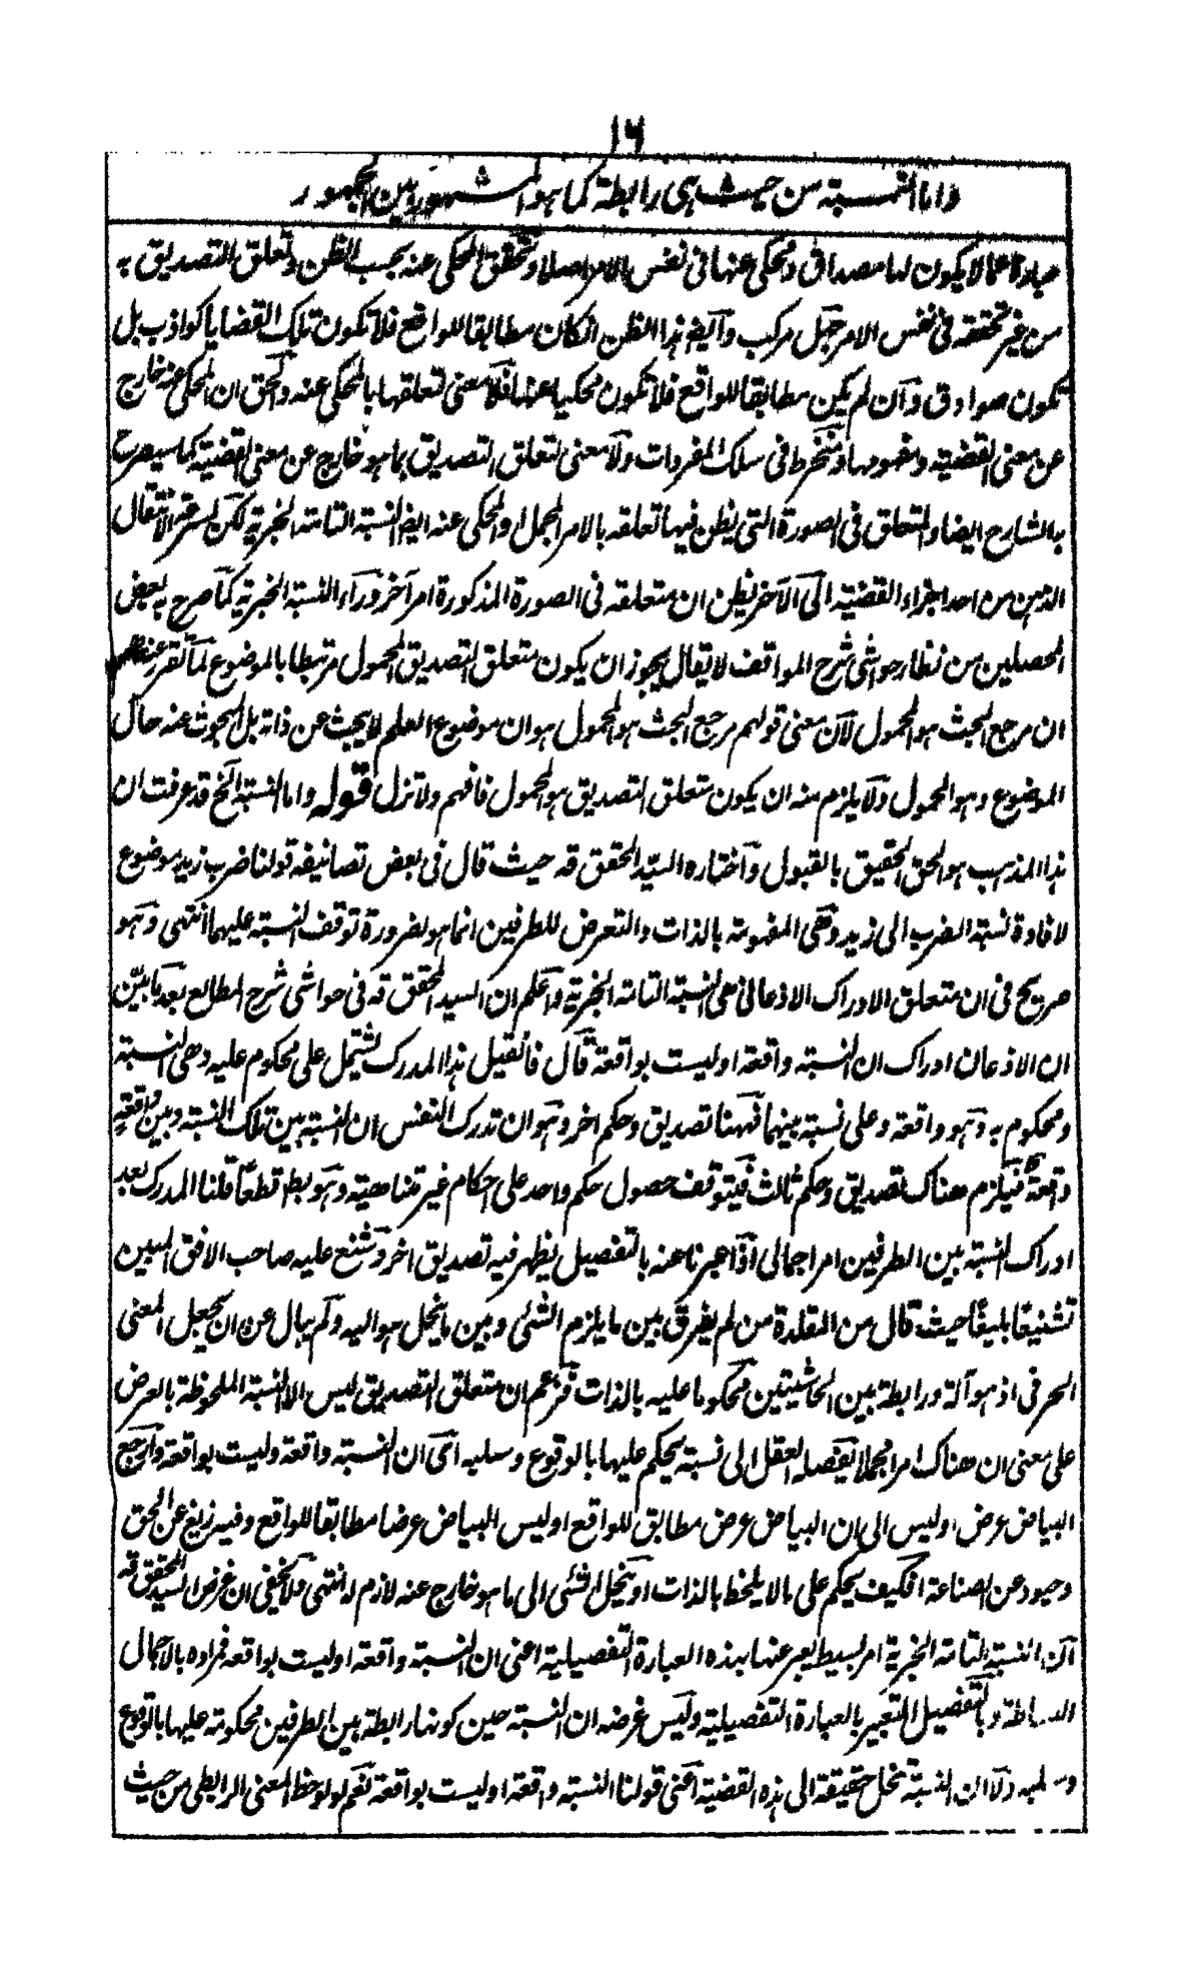 ١٦
واما النسبة من حيث هى رابطة كما هو المشهور بين الجمهور
عما لا يكون لها مصداق ومحكى عنها فى نفس الامر اصلا وتحقق المحكى عنه بحسب الظن وتعلق التصديق به
من غير تحققه فى نفس الامر جهل مركب وايضا هذا الظن انكان مطابقا للواقع فلا تكون تلك القضايا كواذب بل
تكون صوادق وان لم يكن مطابقا للواقع فلا تكون محكيا عنها فلا معنى لتعلقها بالمحكى عنه والحق ان المحكى عنه خارج
عن معنى القضية ومفهومها ومنخرط فى سلك المفردات ولا معنى لتعلق التصديق بما هو خارج عن معنى القضية كما سيصرح
به الشارح ايضا والمتعلق فى الصورة التى يظن فيها تعلقه بالامر المجمل او المحكى عنه ايضا النسبة التامة الخبرية لكن لسرعة الانتقال
الذهن من احد اجزاء القضية الى الآخر يظن ان متعلقه فى الصورة المذكورة امر آخر وراء النسبة الخبرية كما صرح به بعض
المحصلين من نظار حواشى شرح المواقف لا يقال يجوز ان يكون متعلق التصديق المحمول مرتبطا بالموضوع لما تقرر عندهم
ان مرجع البحث هو المحمول لان معنى قولهم مرجع البحث هو المحمول هو ان موضوع العلم لا يبحث عن ذاته بل المبحوث عنه حال
الموضوع وهو المحمول ولا يلزم منه ان يكون متعلق التصديق هو المحمول فافهم ولا تزل قوله واما النسبة الخ قد عرفت ان
هذا المذهب هو الحق الحقيق بالقبول واختاره السيد المحقق قه حيث قال فى بعض تصانيفه قولنا ضرب زيد موضوع
لافادة نسبة الضرب الى زيد وهى المفهومة بالذات والتعرض للطرفين انما هو لضرورة توقف النسبة عليهما انتهى وهو
صريح فى ان متعلق الادراك الاذعانى هى النسبة التامة الخبرية واعلم ان السيد المحقق قه فى حواشى شرح المطالع بعد ما بين
ان الاذعان ادراك ان النسبة واقعة او ليست بواقعة قال فان قيل هذا المدرك يشتمل على محكوم عليه وهى النسبة
ومحكوم به وهو واقعة وعلى نسبة بينهما فههنا تصديق وحكم اخر وهو ان تدرك النفس ان النسبة بين تلك النسبة وبين واقعة
واقعة فيلزم هناك تصديق وحكم ثالث فيتوقف حصول حكم واحد على احكام غير متناهية وهو بط قطعا قلنا المدرك بعد
ادراك النسبة بين الطرفين امر اجمالى اذا عبرنا عنه بالتفصيل يظهر فيه تصديق اخر وشنع عليه صاحب الافق المبين
تشنيعا بليغا حيث قال من المقلدة من لم يفرق بين ما يلزم الشئ وبين ما ينحل هو اليه ولم يبال عن ان يجعل المعنى
الحرفى اذ هو آلة ورابطة بين الحاشيتين محكوما عليه بالذات فزعم ان متعلق التصديق ليس الا النسبة الملحوظة بالعرض
على معنى ان هناك امرا مجملا يفصله العقل الى نسبة يحكم عليها بالوقوع وسلبه اى ان النسبة واقعة وليست بواقعة وارجع
البياض عرض او ليس الى ان البياض عرض مطابق للواقع او ليس البياض عرضا مطابقا للواقع وفيه زيغ عن الحق
وحيود عن الصناعة افكيف يحكم على ما لا يلحظ بالذات او ينحل الشئ الى ما هو خارج عنه لازم له انتهى ولا يخفى ان غرض السيد المحقق قه
ان النسبة التامة الخبرية امر بسيط يعبر عنها بهذه العبارة التفصيلية اعنى ان النسبة واقعة او ليست بواقعة فمراده بالاجمال
البساطة وبالتفصيل التعبير بالعبارة التفصيلية وليس غرضه ان النسبة حين كونها رابطة بين الطرفين محكومة عليها بالوقوع
وسلبه ولا ان النسبة تنحل حقيقة الى هذه القضية اعنى قولنا النسبة واقعة او ليست بواقعة نعم لو لوحظ المعنى الرابطى من حيث